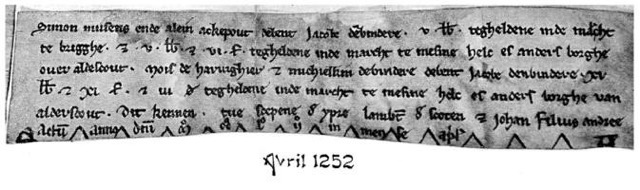 Simon musens ende alein ackepout debent Jacobe debindere . v . lib . te gheldene inde maerct
te brugghe . z . v . lib . z . vi . s . te gheldene inde maerct te mesine helc es anders borghe
over aldescout . Mois de harwighier z michiellin debindere debent Jacobe denbindere xv
lib z xi s . z iii d te gheldene inde maerct te mesine helc es anders borghe van
alderscout . Dit kennen . tue scepene d ypre lambt d scoten z Johan filius andree
Actu anno dni in mense april
Avril 1252